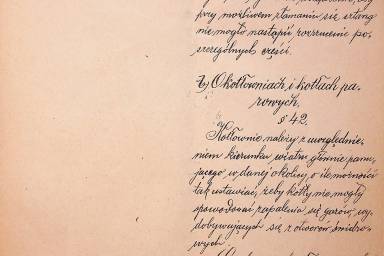 przy możliwem złamaniu się sztang
nie mogło nastąpić rozrzucenie po-
szczególnych części.
b) O kotłowniach i kotłach pa-
rowych.
§ 42.
Kotłownie należy z uwzględnie-
niem kierunku wiatru głównie panu-
jącego w danej okolicy, o ile możności
tak ustawiać, żeby kotły nie mogły
spowodować zapalenia się gazów, wy-
dobywających się z otworów świdro-
wych.